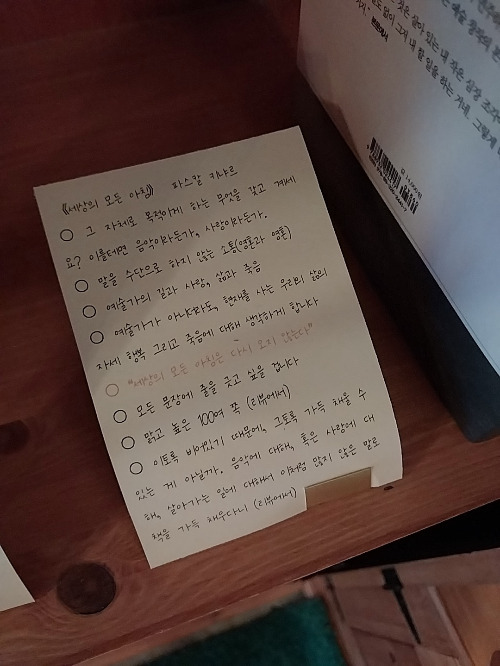 《세상의 모든 아침》 파스칼 키냐르
○ 그 자체로 목적이게 하는 무엇을 갖고 계세
요? 이를테면 음악이라든가, 사랑이라든가.
○ 말을 수단으로 하지 않는 소통(영혼과 영혼)
○ 예술가의 길과 사랑, 삶과 죽음
○ 예술가가 아니라도, 현재를 사는 우리의 삶의
자세 행복 그리고 죽음에 대해 생각하게 합니다
○ "세상의 모든 아침은 다시 오지 않는다"
○ 모든 문장에 줄을 긋고 싶을 겁니다
○ 맑고 높은 100여 쪽 (리뷰에서)
○ 이토록 비어있기 때문에, 그토록 가득 채울 수
있는 게 아닐까. 음악에 대해, 혹은 사랑에 대
해, 살아가는 일에 대해서 이처럼 많지 않은 말로
책을 가득 채우다니 (리뷰에서)
것은 살아 있는 내 작은 심장 조각
없이 그저 내 할 일을 하는 거네. 그렇게
본문에서